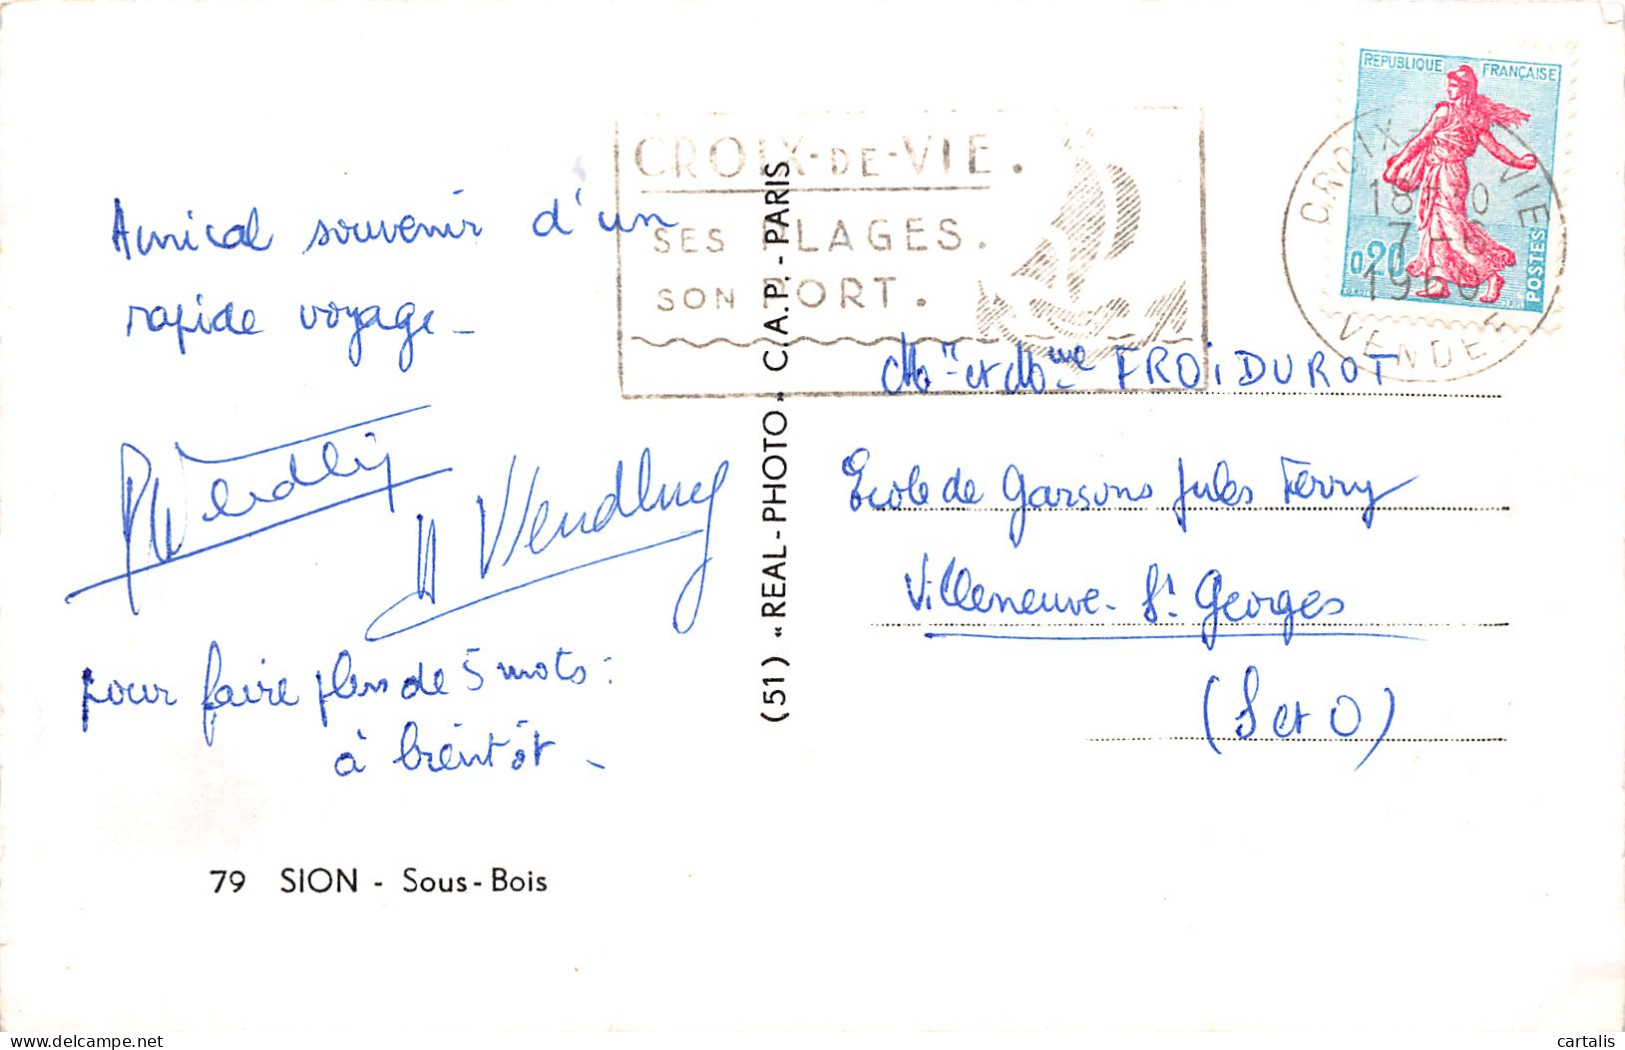 Amical souvenir d'un
rapide voyage -
PWendling
A Wendling
pour faire plus de 5 mots :
à bientôt -
79 SION - Sous-Bois
(51) « REAL-PHOTO » C.A.P. - PARIS
CROIX-DE-VIE.
SES PLAGES.
SON PORT.
REPUBLIQUE FRANÇAISE
0,20
POSTES
CROIX-DE-VIE
7-6
1960
VENDEE
Mr et Mme FROIDUROT
Ecole de Garsons Jules Ferry
Villeneuve-St Georges
(S et O)
cartalis